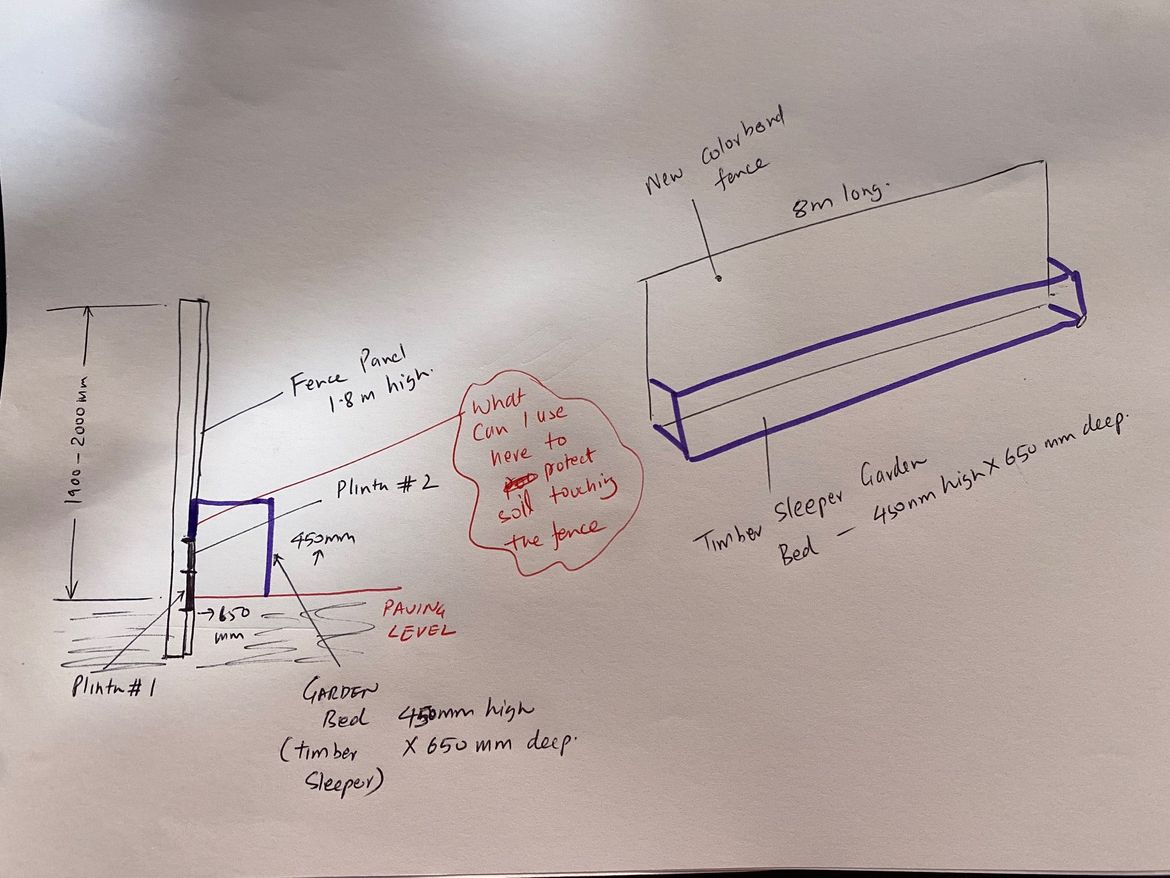 New Colorbond
fence
8m long.
1900 - 2000 mm
Fence Panel
1.8 m high.
What
Can I use
here to
protect
soil touching
the fence
Plinth # 2
450mm
→ 650
mm
PAVING
LEVEL
Plinth # 1
GARDEN
Bed 450mm high
(timber X 650 mm deep.
Sleeper)
Timber Sleeper Garden
Bed - 450mm high X 650 mm deep.